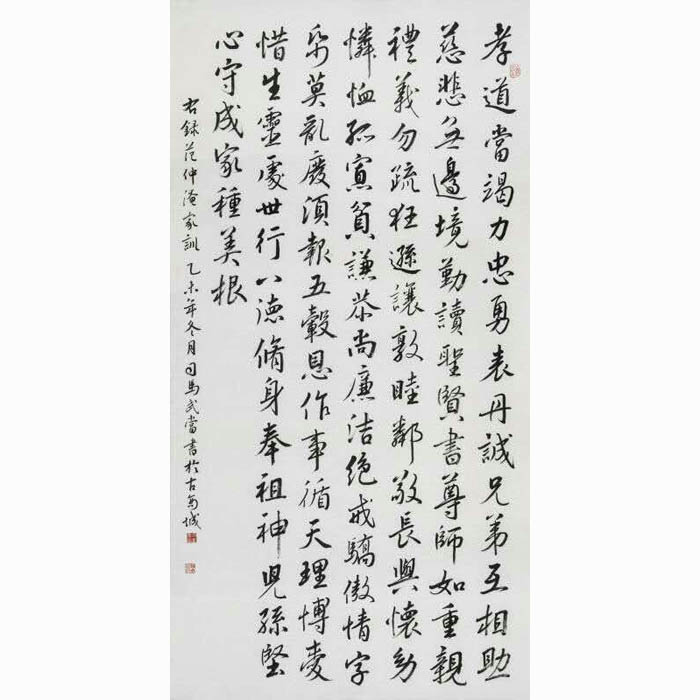 孝道當竭力忠勇表丹誠兄弟互相助
慈悲無邊境勤讀聖賢書尊師如重親
禮義勿疏狂遜讓敦睦鄰敬長與懷幼
憐恤孤寡貧謙恭尚廉潔絕戒驕傲情字
帋莫亂廢須報五穀恩作事循天理博愛
惜生靈處世行八德脩身奉祖神兒孫堅
心守成家種美根
右錄范仲淹家訓乙未年冬月司馬武當書於古城